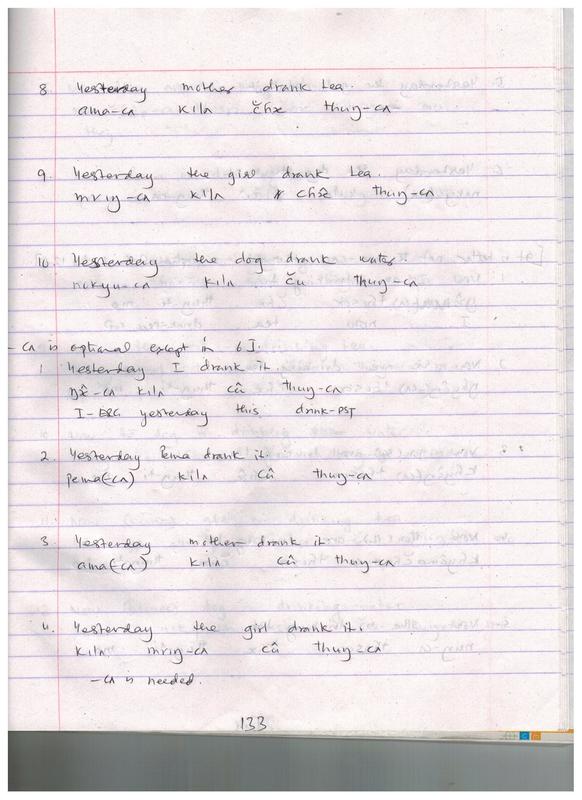 8. Yesterday mother drank tea.
ama-cʌ kilʌ čhx thuŋ-cʌ
9. Yesterday the girl drank tea.
mriŋ-cʌ kilʌ čhx̂ thuŋ-cʌ
10. Yesterday the dog drank water
nʌkyu-cʌ kilʌ ču thuŋ-cʌ
-cʌ is optional except in 6 I.
1 Yesterday I drank it.
ŋx̂-cʌ kilʌ cû thuŋ-cʌ
I-ERG yesterday this drink-PST
2. Yesterday Pema drank it.
pema(-cʌ) kilʌ cû thuŋ-cʌ
3 Yesterday mother drank it
ama(-cʌ) kilʌ cû thuŋ-cʌ
4. Yesterday the girl drank it.
kilʌ mriŋ-cʌ cû thuŋ-cʌ
-cʌ is needed.
133